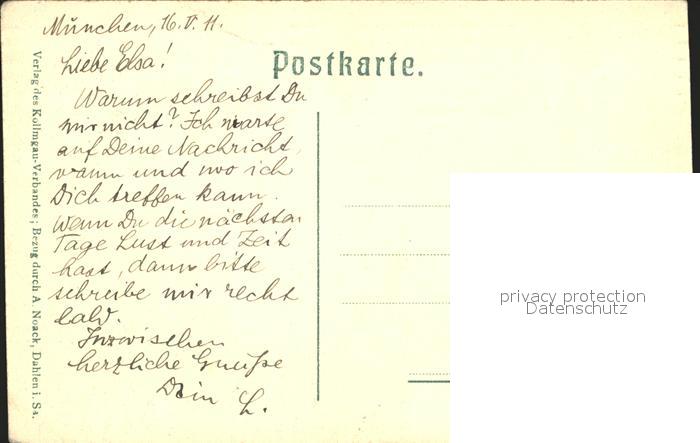 München, 16.V.11.
Liebe Elsa!
Postkarte.
Warum schreibst Du
mir nicht? Ich warte
auf Deine Nachricht,
wann und wo ich
Dich treffen kann.
Wenn Du die nächsten
Tage Lust und Zeit
hast, dann bitte
schreibe mir recht
bald.
Inzwischen
herzliche Gruüße
Dein L.
Verlag des Kollmgau-Verbandes; Bezug durch A. Noack, Dahlen i. Sa.
privacy protection
Datenschutz